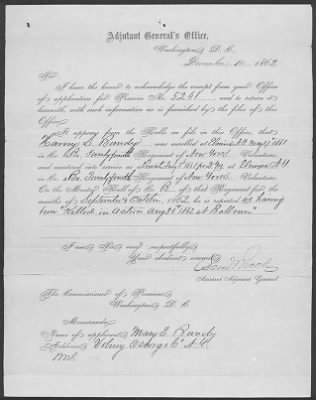 Adjutant General's Office,
Washington, D. C.
December 10, 1862
Sir:
I have the honor to acknowledge the receipt from your Office
of application for Pension No. 5261, and to return it
herewith, with such information as is furnished by the files of this
Office.
It appears from the Rolls on file in this Office, that
S. Bundy was enrolled at
in Co. Regiment of New York Volunteers,
and mustered into service as at Elmira N.Y.
in Co. Regiment of New York Volunteers.
On the Muster Roll of Co. B of that Regiment for the
months of September & October, 1862, he is reported as having
been "Killed in action Aug 1862 at
I am, Sir, very respectfully,
Your obedient servant,
Assistant Adjutant General.
The Commissioner of Pensions,
Washington, D. C.
Memoranda:
Name of applicant, Mary E. Bundy
Address, Volney Oswego Co. N.Y.